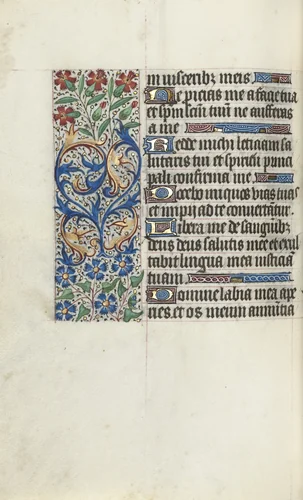 in uiscerib3 meis
Ne piicias me a facie tua
et spm̄ sctm̄ tuū ne auferas
a me
Redde michi leticiam sa
lutaris tui et spiritu princi
pali confirma me
Docebo iniquos uias tuas
et impij ad te conuertātur.
Libera me de sanguīib3
deus deus salutis mee et exul
tabit lingua mea iusticiā
tuam.
Domine labia mea ape
ries. et os meum annūtia